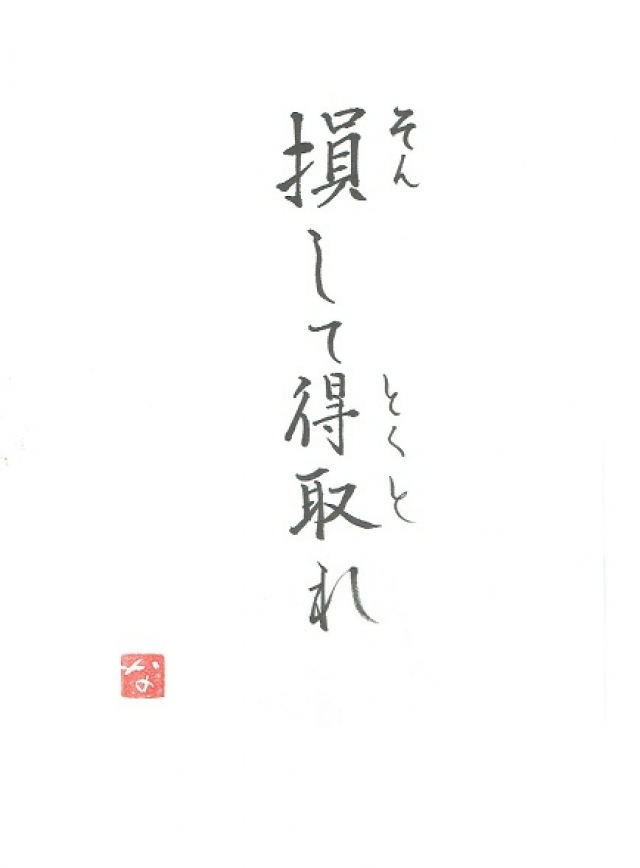 そん
損して得取れ
とくと
な